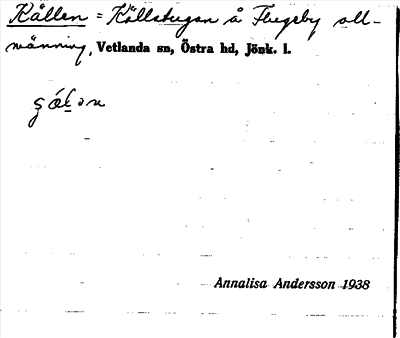 Kållen = Källstugan å Flugeby all-
männing, Vetlanda sn, Östra hd, Jönk. l.
Annalisa Andersson 1938